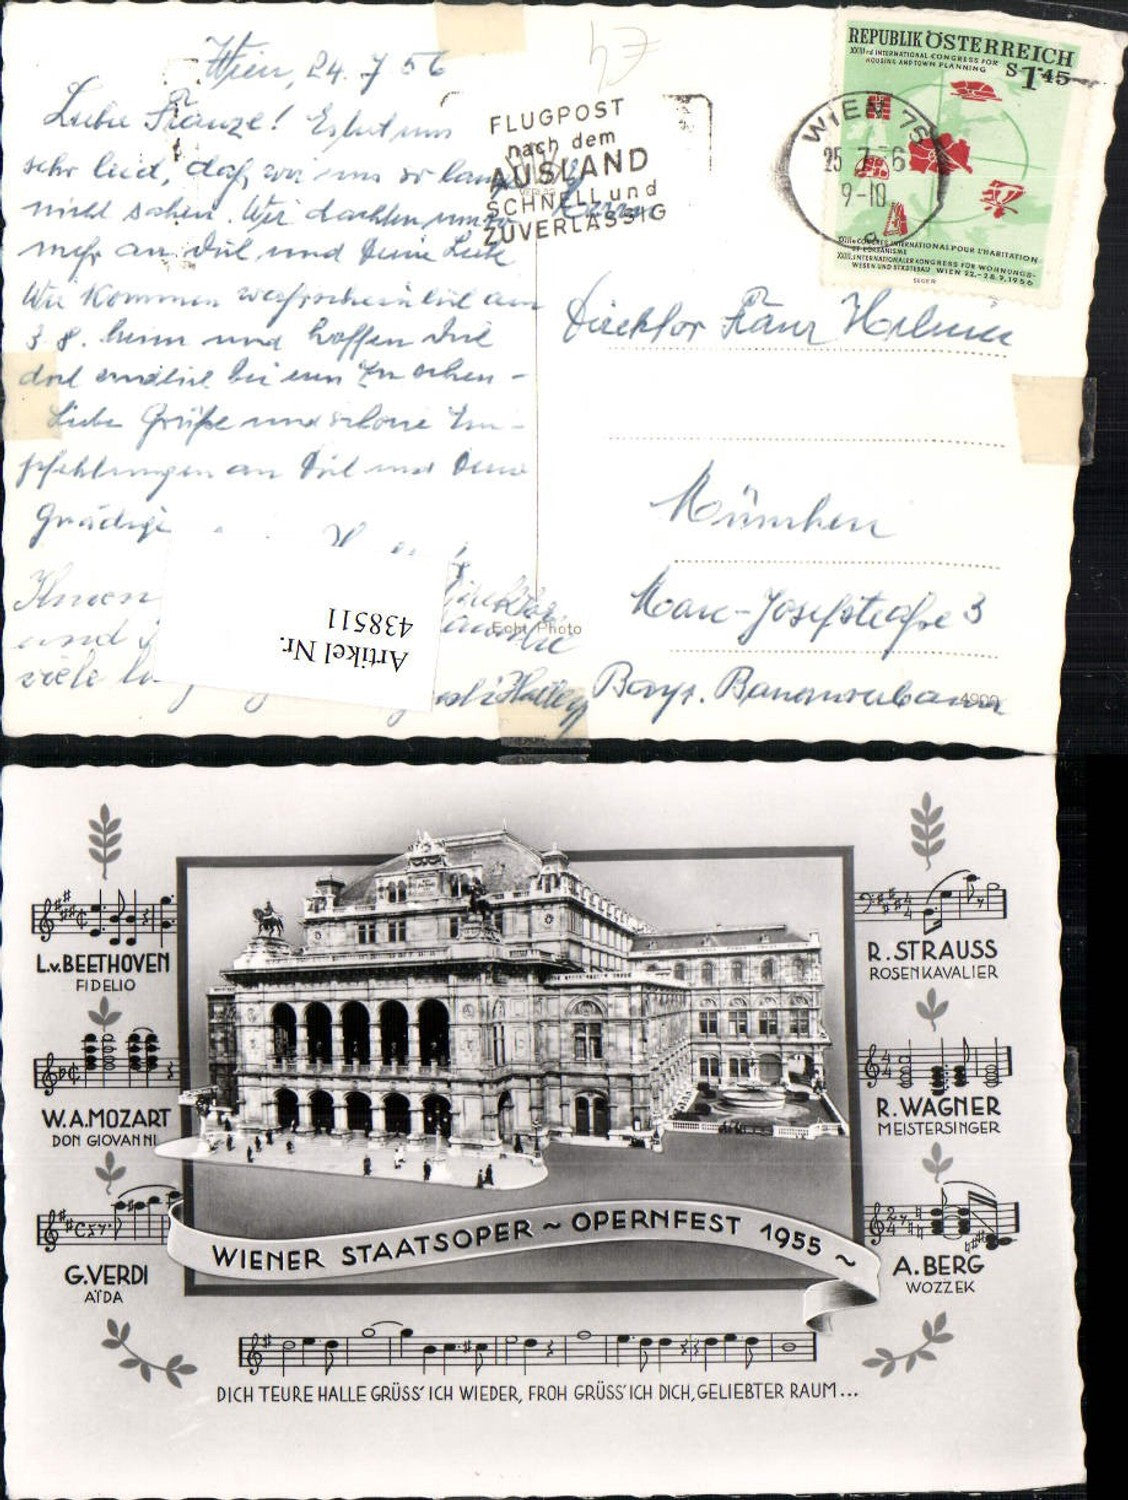 Wien, 24. 7 56
Liebe Franzl! Es tut uns
sehr leid, daß wir uns so lang
nicht sahen. Wir dachten umso
mehr an Dich und Deine Liebe
Wir kommen wahrscheinlich am
3. 8. heim und hoffen Dich
dort endlich bei uns zu sehen -
Liebe Grüße und schöne Em-
pfehlungen an Dich und Deine
Gnädige
und
viele
FLUGPOST
nach dem
AUSLAND
SCHNELL und
ZUVERLÄSSIG
WIEN 76
25 7 56
9-10
REPUBLIK ÖSTERREICH
XXIIIrd INTERNATIONAL CONGRESS FOR
HOUSING AND TOWN PLANNING
S 1·45
XXIIIe CONGRÈS INTERNATIONAL POUR L'HABITATION
ET L'URBANISME
XXIII. INTERNATIONALER KONGRESS FÜR WOHNUNGS-
WESEN UND STÄDTEBAU WIEN 22.-28.7.1956
SEGER
Direktor Franz
München
Marc-Josefstraße 3
Bayr.
Echt Photo
4909
Artikel Nr.
438511
L.v.BEETHOVEN
FIDELIO
W.A.MOZART
DON GIOVANNI
G.VERDI
AÏDA
R.STRAUSS
ROSENKAVALIER
R.WAGNER
MEISTERSINGER
A.BERG
WOZZEK
WIENER STAATSOPER ~ OPERNFEST 1955 ~
DICH TEURE HALLE GRÜSS' ICH WIEDER, FROH GRÜSS' ICH DICH, GELIEBTER RAUM...